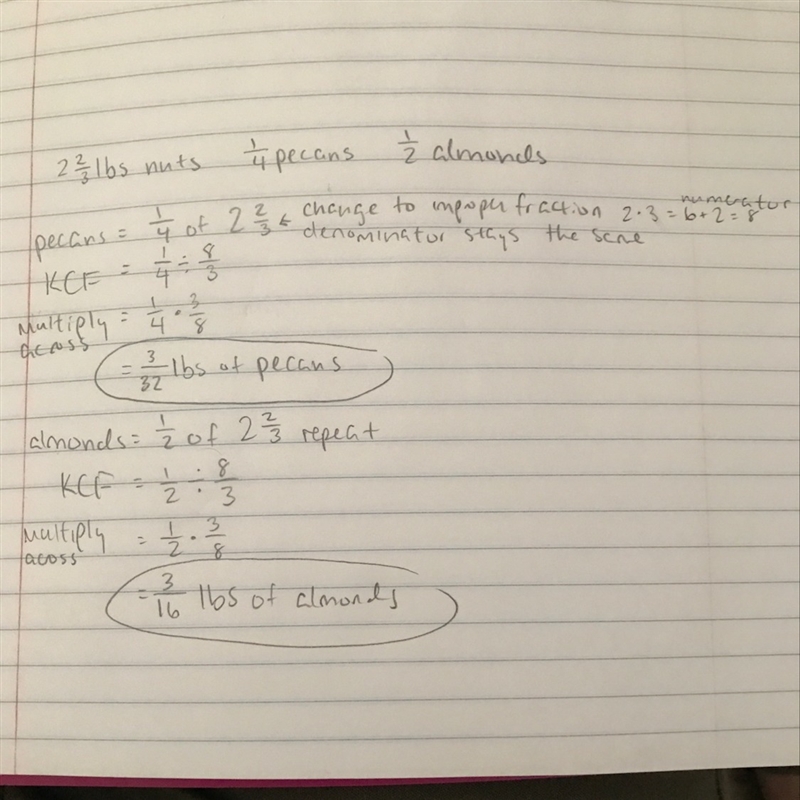 2 2/3 lbs nuts 1/4 pecans 1/2 almonds
pecans = 1/4 of 2 2/3 ← change to improper fraction 2·3 = 6+2 = 8 numerator
denominator stays the same
KCF = 1/4 ÷ 8/3
Multiply across = 1/4 · 3/8
= 3/32 lbs of pecans
almonds = 1/2 of 2 2/3 repeat
KCF = 1/2 ÷ 8/3
Multiply acoss = 1/2 · 3/8
= 3/16 lbs of almonds